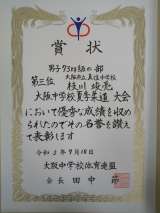 賞状
男子73kg級の部
第三位
大阪中学校夏季柔道大会
において優秀な成績を収め
られたのでその名誉を讃え
て表彰します
大阪中学校体育連盟
会長 田中